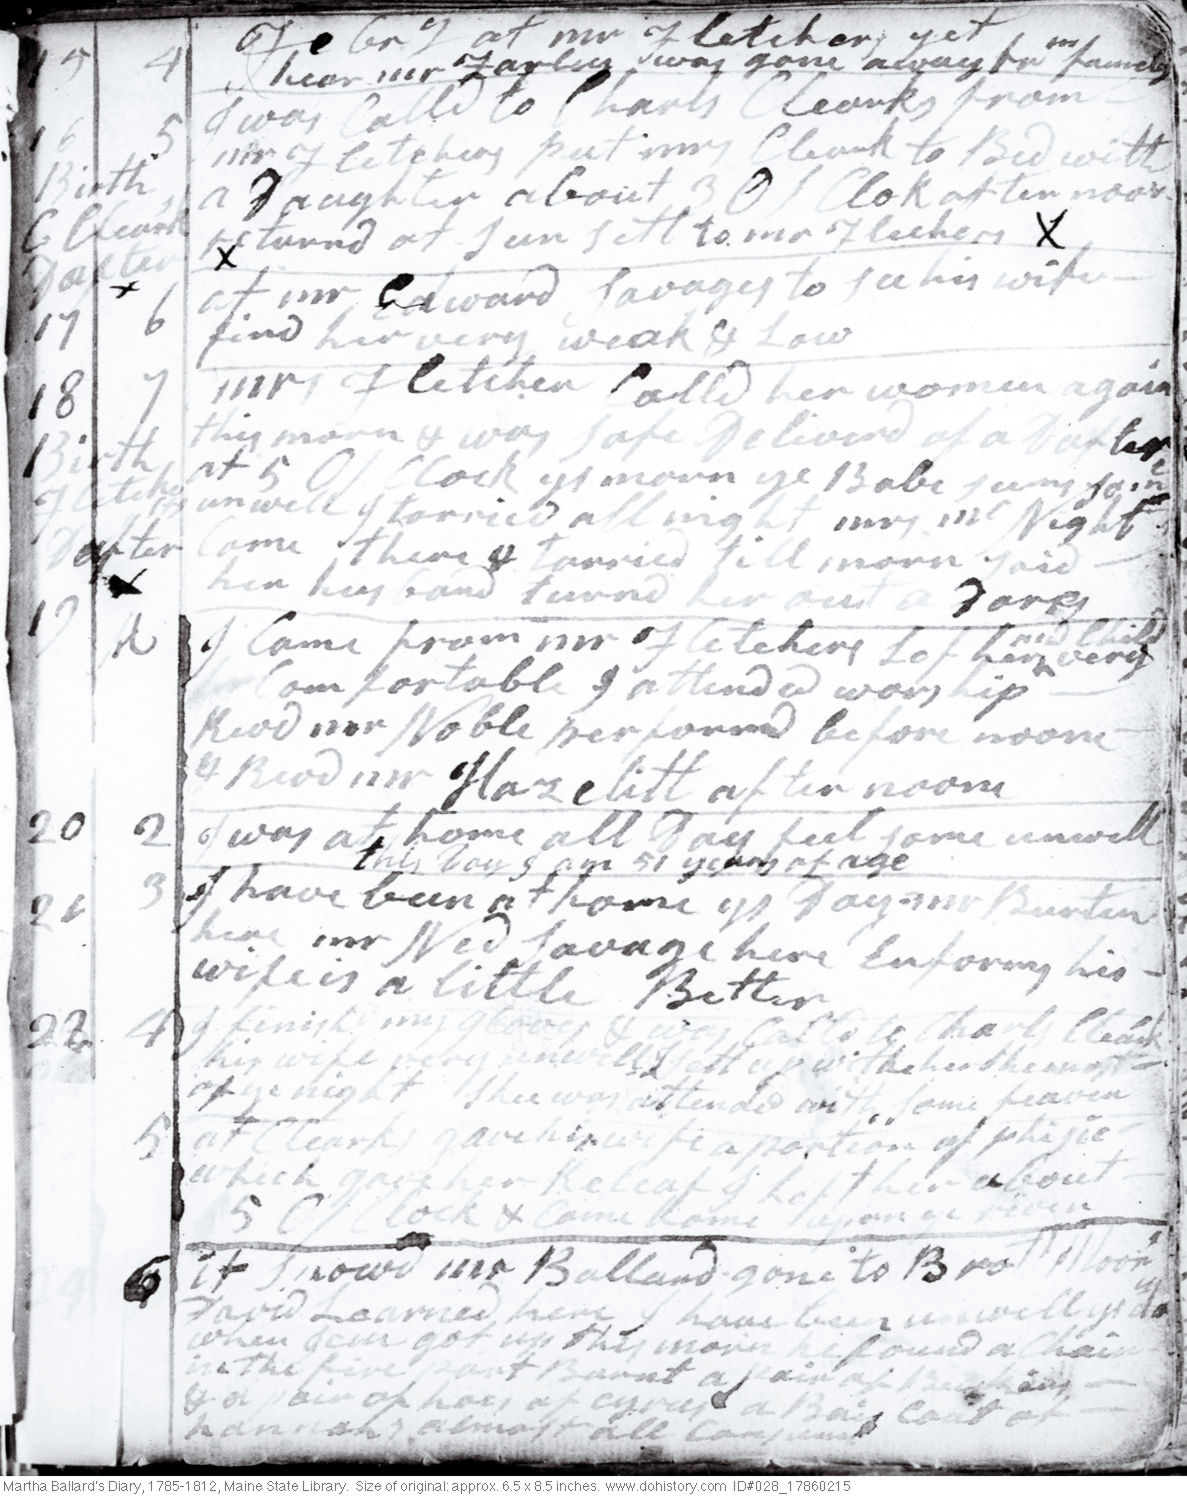 Febry at mr Fletchers yet
15 4 I hear mr Farley was gone away fm fm family
I was Calld to Charls Clearks from
16 5 mr Fletchers put mrs Cleark to Bed with
Birth a Daughter about 3 O Clok afternoon
C Clearks returnd at Sun sett to mr Flechers X
Dafter X
at mr Edward Savages to see his wife
17 6 find her very weak & Low
18 7 mrs Fletcher Calld her women again
this morn & was safe Deliverd of a Dafter
Birth at 5 O Clock ys morn ye Babe seems some
Fletchers unwell I tarried all night mrs mc Night
Dafter Came there & tarried till morn said
X her husband turnd her out a Dores
19 I Came from mr Fletchers Left her and Child very
Comfortable I attended worship
Revd mr Noble performd before noone
& Revd mr Hazelitt after noone
20 2 I was at home all Day feel some unwell
this Day I am 51 years of age
21 3 I have been at home ys Day mr Burten
here mr Ned Savage here Enforms his
wife is a little Better
22 4 I finisht my gloves & was Calld to Charls Cleark
his wife very unwell I sett up with her the most
of ye night Shee was attended with some feaver
5 at Clearks gave his wife a portion of phisic
which gave her Releaf I left her about
5 O Clock & Came home upon ye river
6 it Snowd mr Ballard gone to Bro Moors
David Learned here I have been unwell ys da
when Jem got up this morn he found a Chair
in the fire part Burnt a pair of
& a pair of hoes of cyrus a Bais Coat of
hannahs almost all Consumd
Martha Ballard's Diary, 1785-1812, Maine State Library. Size of original: approx. 6.5 x 8.5 inches. www.dohistory.com ID#028_17860215